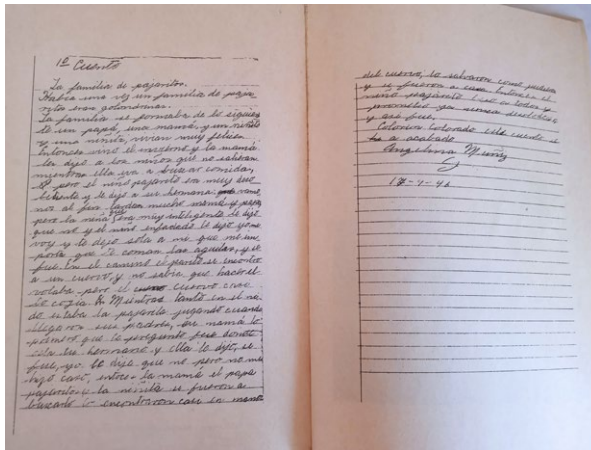 1º Cuento
La familia de pajaritos.
Había una vez un familia de paja
ritos eran golondrinas.
La familia se formaba de lo siguien
te un papá, una mamá, y un niñito
y una niñita, vivian muy felices.
Entonces vino el invierno y la mamá
les dijo a los niños que no salieran
mientras ella iva a buscar comida,
pero el niño pajarito era muy deso
bediente y le dijo a su hermana vamo
nos al fin tardan mucho mamá y papá
pero la niña que era muy inteligente le dijo
que no y el niño enfadado le dijo yo me
voy y te dejo sola a mi que mi im
porta que te coman las aguilas, y se
fue. En el camino el perito se encontro
a un cuervo, y no sabia que hacer el
volaba pero el cuervo casi
lo cogia Mientras tanto en el ni
do estaba la pajarita jugando cuando
llegaron sus padres, su mamá lo
primero que le pregunto fue donde
esta tu hermano y ella le dijo, se
fue, yo le dije que no pero no me
hizo caso, entoces la mamá el papá
pajarito y la niñita se fueron a
buscarlo lo encontraron casi en manos
del cuervo, lo salvaron como pudieron
y se fueron a casa entonces el
niño pajarito
prometió ya nunca
y así fue.
Colorin Colorado este cuento se
ha acabado
Angelina Muñiz